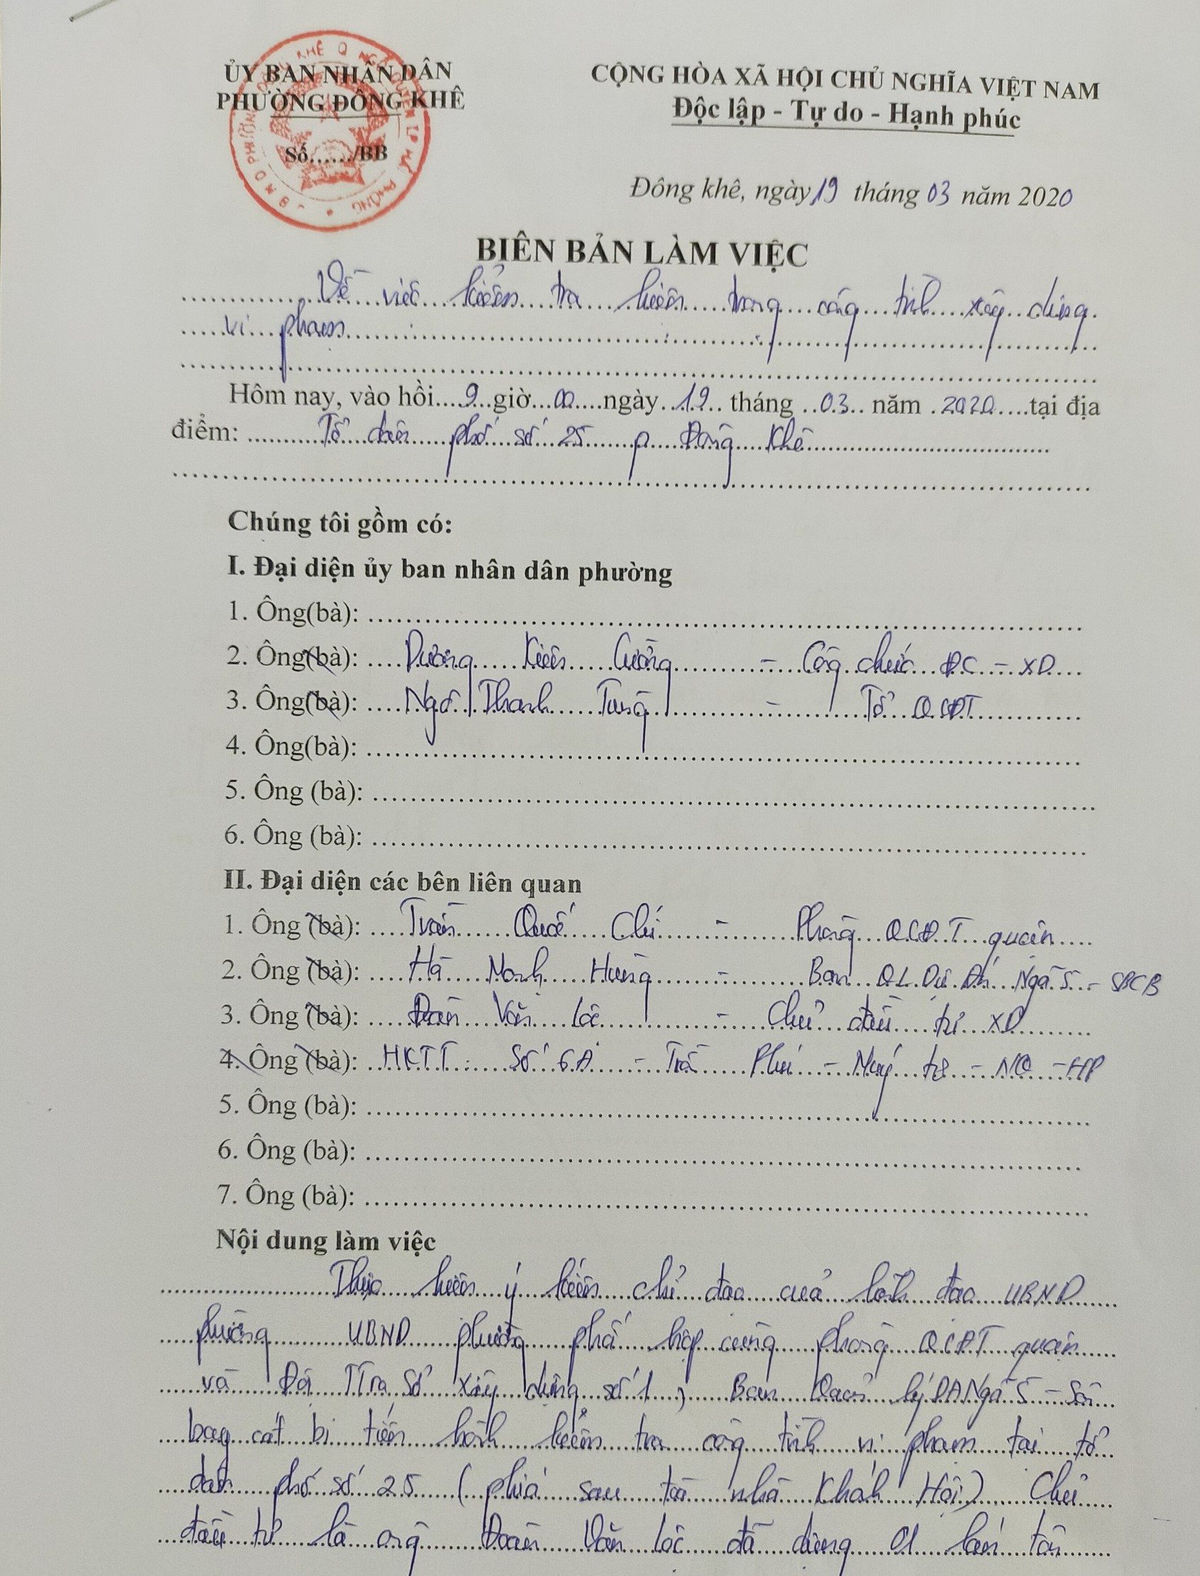 ỦY BAN NHÂN DÂN
PHƯỜNG ĐÔNG KHÊ
Số....../BB
CỘNG HÒA XÃ HỘI CHỦ NGHĨA VIỆT NAM
Độc lập - Tự do - Hạnh phúc
Đông khê, ngày 19 tháng 03 năm 2020
BIÊN BẢN LÀM VIỆC
Về việc kiểm tra hiện trạng công trình xây dựng
vi phạm
Hôm nay, vào hồi 9 giờ 00 ngày 19 tháng 03 năm 2020 tại địa
điểm: Tổ dân phố số 25 p Đông Khê
Chúng tôi gồm có:
I. Đại diện ủy ban nhân dân phường
1. Ông(bà):
2. Ông(bà): Dương Kiên Cường - Công chức ĐC - XD
3. Ông(bà): Ngô Thanh Tùng - Tổ QLĐT
4. Ông(bà):
5. Ông (bà):
6. Ông (bà):
II. Đại diện các bên liên quan
1. Ông (bà): Trần Quốc Chí - Phòng QLĐT quận
2. Ông (bà): Hà Mạnh Hùng - Ban QL Dự Án Ngã 5 - SBCB
3. Ông (bà): Đoàn Văn Lộc - Chủ đầu tư XD
4. Ông (bà): HKTT: Số 6A - Trần Phú - Máy tơ - NQ - HP
5. Ông (bà):
6. Ông (bà):
7. Ông (bà):
Nội dung làm việc
Thực hiện ý kiến chỉ đạo của lãnh đạo UBND
phường UBND phường phối hợp cùng phòng QLĐT quận
và Đội TTra Sở xây dựng số 1, Ban Quản lý DA Ngã 5 - Sân
bay cát bi tiến hành kiểm tra công trình vi phạm tại tổ
dân phố số 25 (phía sau tòa nhà Khánh Hội) Chủ
đầu tư là ông Đoàn Văn Lộc đã dựng 01 lán tôn